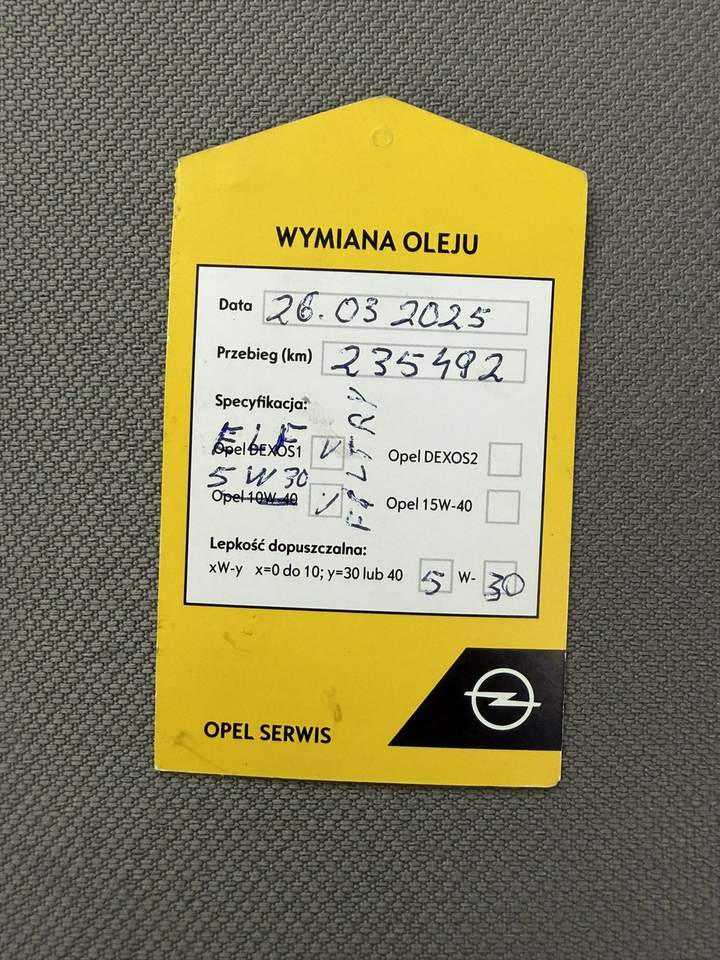 WYMIANA OLEJU
Data 26.03 2025
Przebieg (km) 235492
Specyfikacja:
ELF
Opel DEXOS1 V Opel DEXOS2
5W30
Opel 10W-40 V Opel 15W-40
FILTRY
Lepkość dopuszczalna:
xW-y x=0 do 10; y=30 lub 40 5 W- 30
OPEL SERWIS